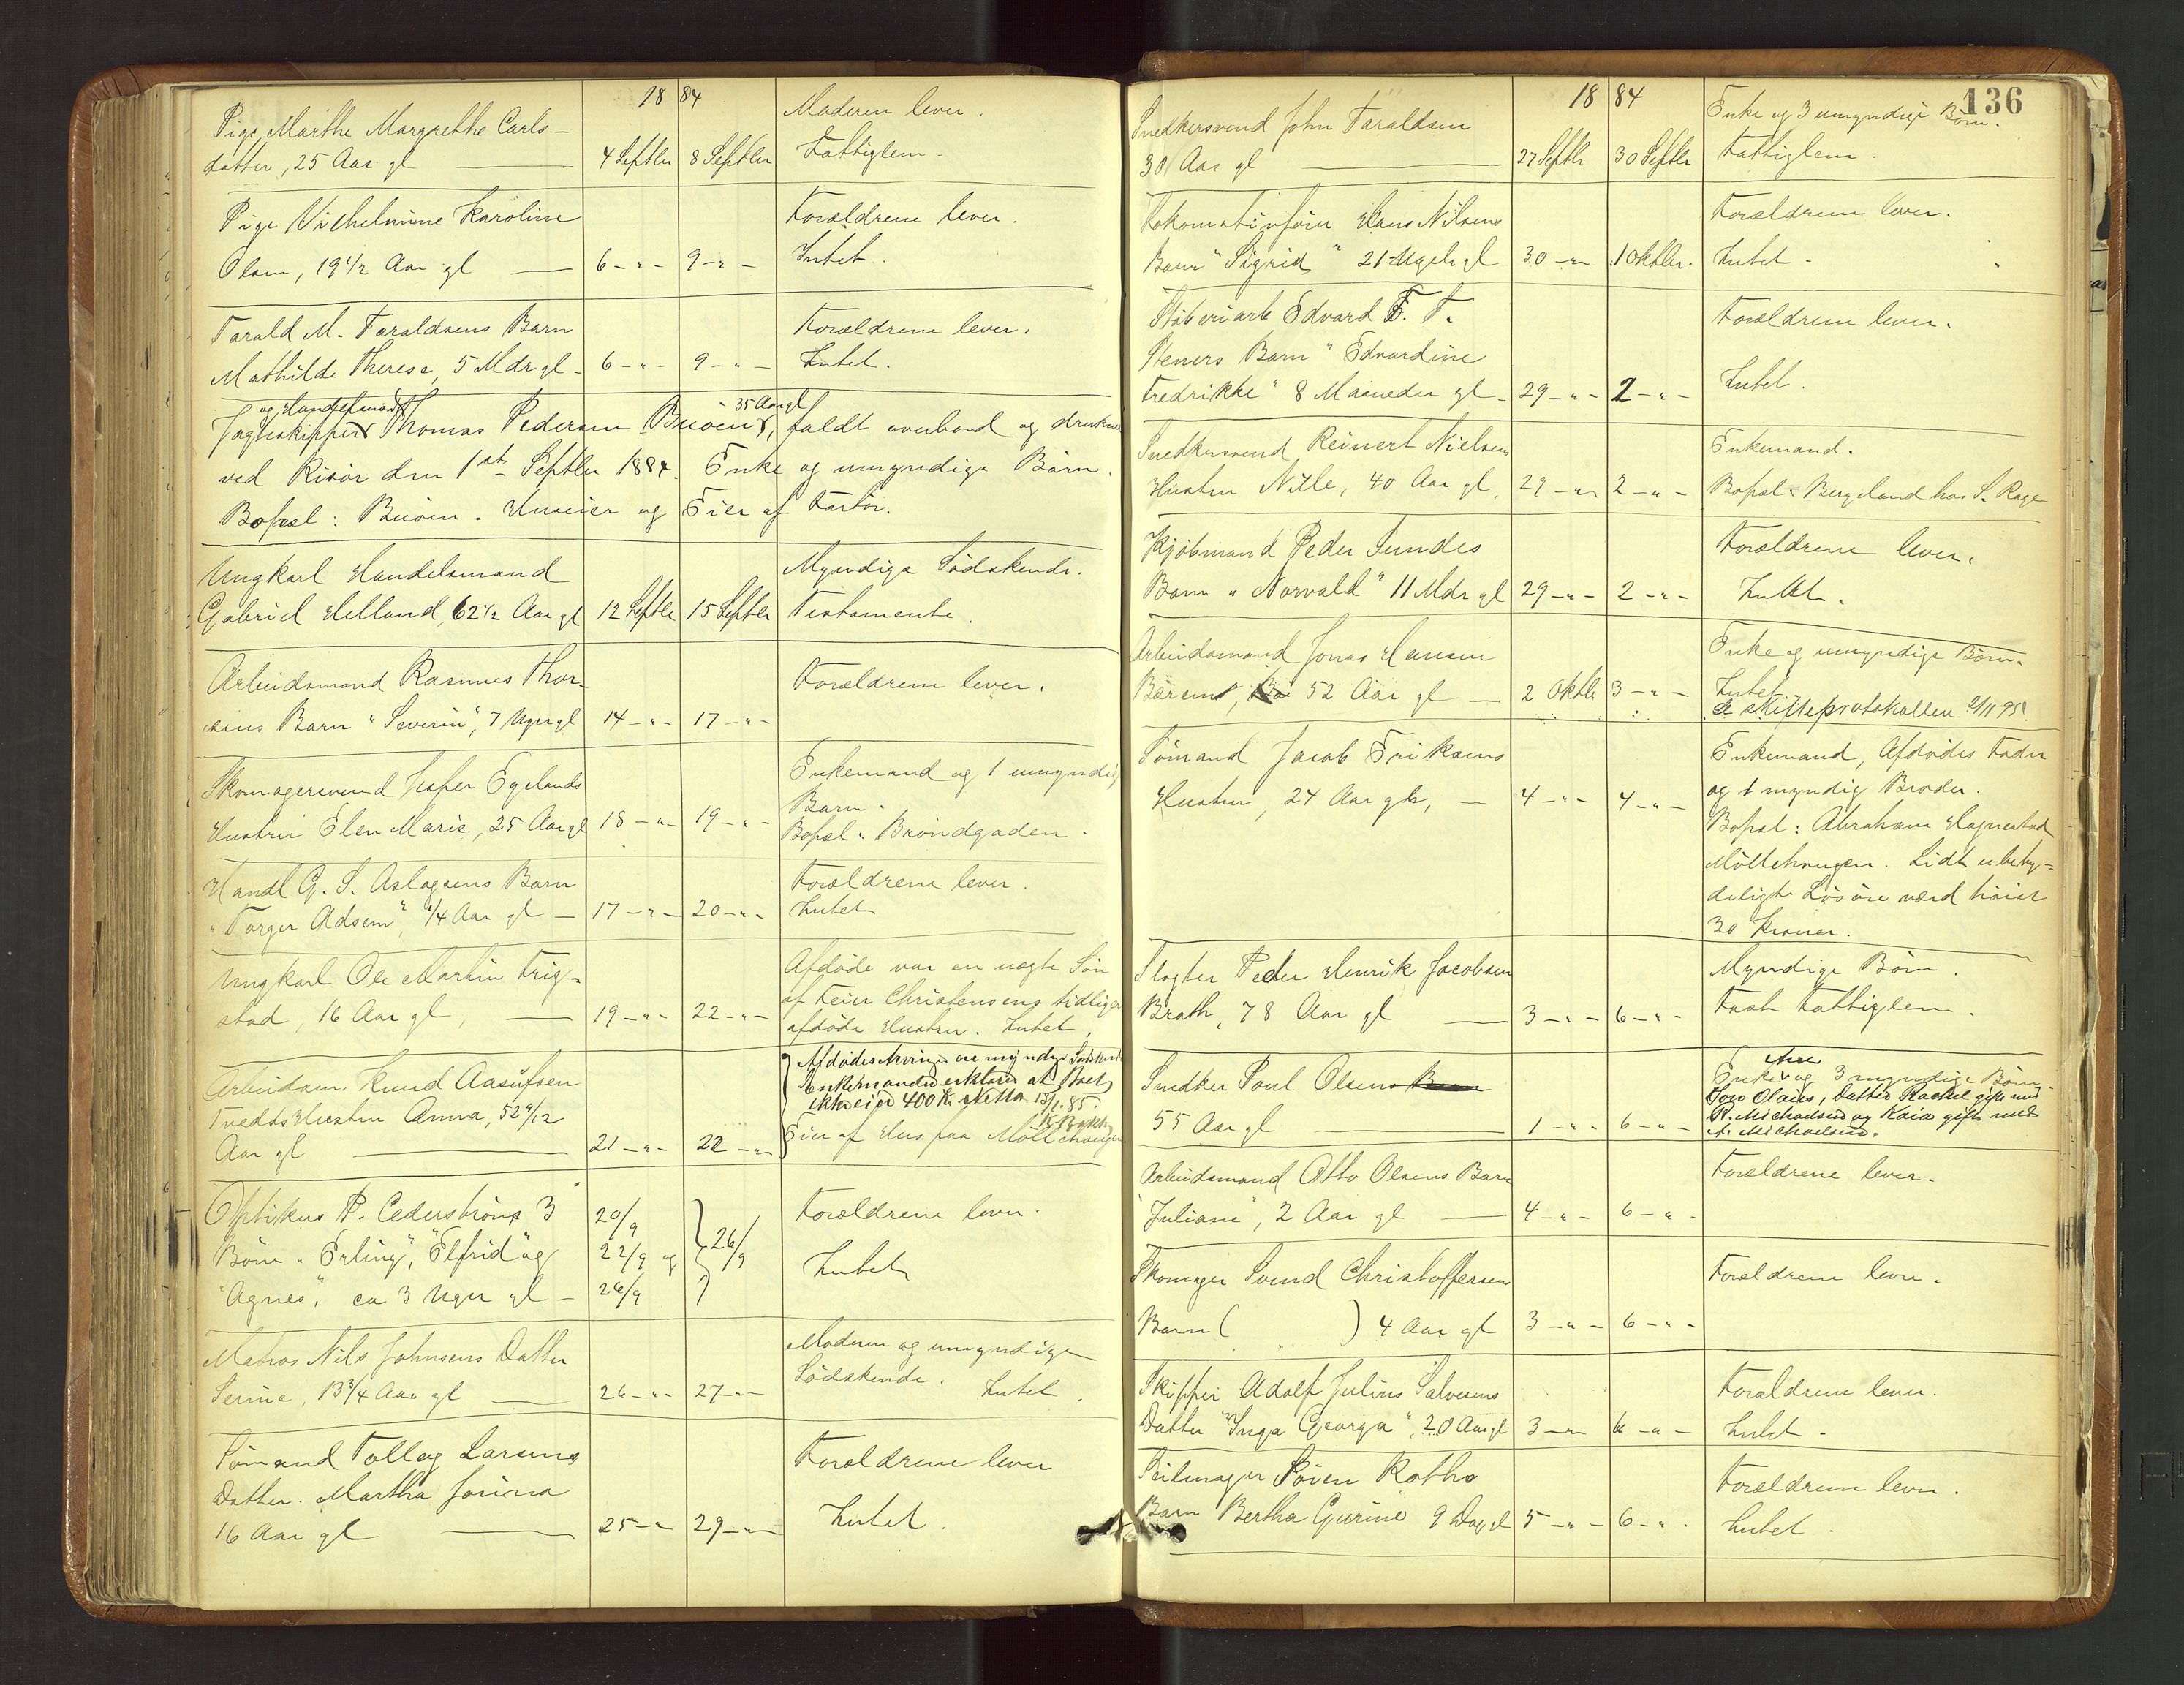 18 84
Pige Marthe Margrethe Carls-
datter, 25 Aar gl — 4 Septbr 8 Septbr
Moderen lever.
Fattiglem.
Pige Vilhelmine Karoline
Olsen, 19 1/2 Aar gl — 6 -"- 9 -"-
Forældrene lever.
Intet.
Tarald M. Taraldsens Barn
Mathilde Therese, 5 Mdr gl - 6 -"- 9 -"-
Forældrene lever.
Intet.
og Handelsmand 35 Aar gl
Jagtskipper Thomas Pedersen Buøen, faldt overbord og druknede
ved Risør den 1ste Septbr 1884. Enke og umyndige Børn.
Bopæl: Buøen. Huseier og Eier af Fartøi.
Ungkarl Handelsmand
Gabriel Helland, 62 1/2 Aar gl 12 Septbr 15 Septbr
Myndige Sødskende.
Testamente.
Arbeidsmand Rasmus Thor-
sens Barn "Severin", 7 Uger gl 14 -"- 17 -"-
Forældrene lever.
Skomagersvend Jesper Egelands
Hustru Elen Marie, 25 Aar gl 18 -"- 19 -"-
Enkemand og 1 umyndig
Barn.
Bopæl: Brøndgaden.
Handl G. S. Aslagsens Barn
"Torger Adsem", 1/4 Aar gl — 17 -"- 20 -"-
Forældrene lever.
Intet
Ungkarl Ole Martin Frig-
stad, 16 Aar gl, — 19 -"- 22 -"-
Afdøde var en uægte Søn
af Feier Christensens tidligere
afdøde Hustru. Intet.
Arbeidsm. Knud Aasulfsen
Tvedts Hustru Anna, 52 9/12
Aar gl — 21 -"- 22 -"-
Afdødes Arvinger ere myndige Sødskende
Enkemanden erklærer at Boet
ikke eier 400 Kr Netto 13/1. 85.
Eier af Hus paa Møllehaugen
Optikus P. Cederstrøms 3
Børn "Erling", "Elfrid" og
"Agnes", ca 3 Uger gl -
20/9
22/9 og
26/9
26/9
Forældrene lever.
Intet
Matros Nils Johnsens Datter
Serine, 13 3/4 Aar gl — 26 -"- 27 -"-
Moderen og umyndige
Sødskende. Intet.
Sømand Tollag Larsens
Datter. Martha Jorina
16 Aar gl — 25 -"- 29 -"-
Forældrene lever
Intet.
136
18 84
Snedkersvend John Taraldsen
30 Aar gl — 27 Septbr 30 Septbr
Enke og 3 umyndige Børn.
Fattiglem.
Lokomotivfører Hans Nilsens
Barn "Sigrid" 21 Uger gl 30 -"- 1 Oktbr.
Forældrene lever.
Intet.
Støberiarb Edvard F. T.
Steners Barn "Edvardine
Fredrikke" 8 Maaneder gl - 29 -"- 2 -"-
Forældrene lever.
Intet.
Snedkersvend Reinert Nielsens
Hustru Nille, 40 Aar gl, 29 -"- 2 -"-
Enkemand.
Bopæl: Bergeland hos S. Rage
Kjøbmand Peder Sundes
Barn "Norvald" 11 Mdr gl 29 -"- 2 -"-
Forældrene lever.
Intet.
Arbeidsmand Jonas Hansen
Bærem, 52 Aar gl — 2 Oktbr 3 -"-
Enke og umyndige Børn.
Intet.
Se skifteprotokollen 2/11 95.
Sømand Jacob Eriksens
Hustru, 24 Aar gl, — 4 -"- 4 -"-
Enkemand, Afdødes Fader
og 1 myndig Broder.
Bopæl: Abraham Hognestad
Møllehaugen. Lidt ubety-
deligt Løsøre værd høist
30 Kroner.
Slagter Peder Henrik Jacobsen
Brath, 78 Aar gl — 3 -"- 6 -"-
Myndige Børn.
Fast Fattiglem.
Snedker Poul Olsens Barn
55 Aar gl — 1 -"- 6 -"-
Enke og 3 myndige Børn.
Olaus, Datter Rachel gift med
R. Michaelsen og Kaia gift med
A. Michaelsen.
Arbeidsmand Otto Olsens Barn
"Juliane", 2 Aar gl — 4 -"- 6 -"-
Forældrene lever.
Skomager Svend Christoffersens
Barn ( ) 4 Aar gl 3 -"- 6 -"-
Forældrene lever.
Skipper Adolf Julius Salvesens
Datter "Inga Georga", 20 Aar gl 3 -"- 6 -"-
Forældrene lever.
Intet.
Seilmager Søren Roths
Barn Bertha Gurine 9 Dag gl 5 -"- 6 -"-
Forældrene lever.
Intet.